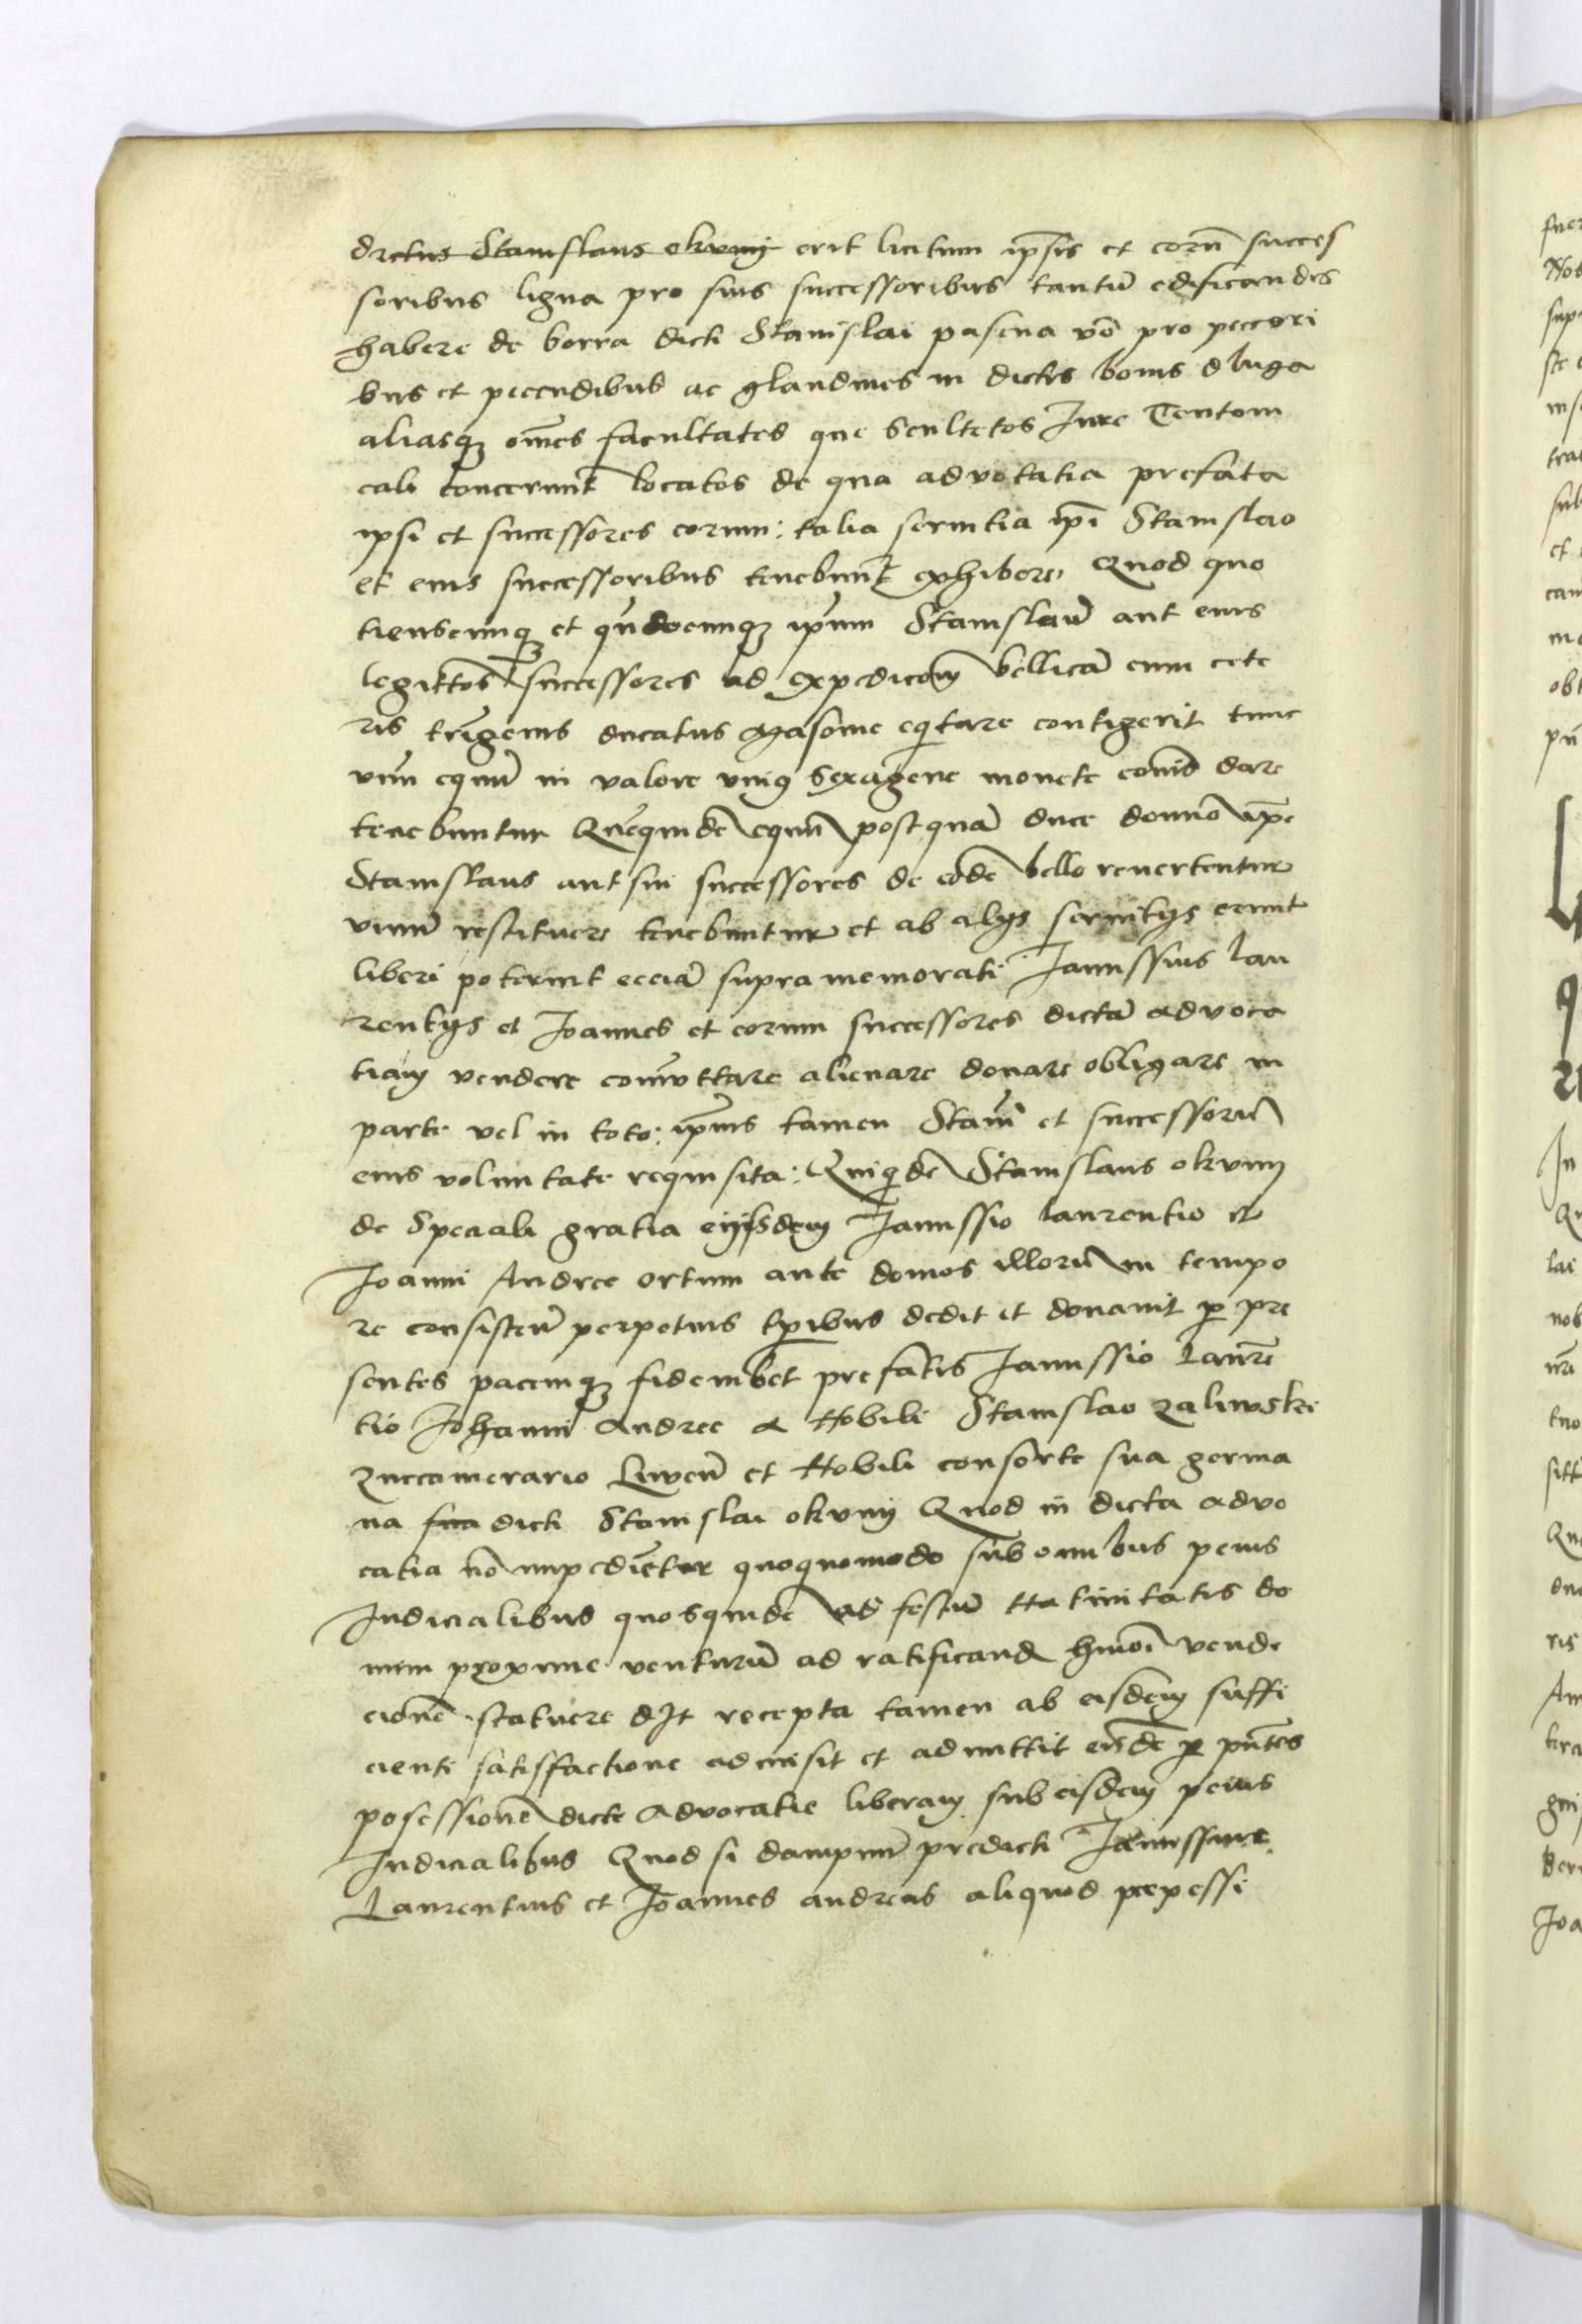 dictus Stanislaus okvnij erit licitum ip̄sis et eorū succes
soribus ligna pro suis successoribus tantū edificandis
habere de borra dicti Stanislai pascua vo͞ pro peccori
bus et peccudibus ac glandines in dictis bonis dluga
aliasqꝫ om̄es facultates que Scultetos Jure Teutom
cali concernūt locatos de qua advocatia prefata
ipsi et successores eorum: talia seruitia ip̄i Stanislao
et eius successoribus tenebunt̄ exhibere Quod quo
tienscunqꝫ et qn̄docunqꝫ ip̄um Stanislaū aut eius
legittos̄ successores ad expedicōm bellicā cum cete
ris tr̄igenis ducatus Masouie eq̄tare contigerit tunc
vnū equū in valore vniꝯ Sexagene monete com̄is dare
tenebuntur Quēquidē equū postquā duce domino ip̄e
Stanislaus aut sui successores de eodē bello reuertentur
viuum restituere tenebuntur et ab alijs seruitijs erunt
liberi poterint eciā supra memorati Janussius lau
rentijs et Joannes et eorum successores dictā advoca
tiam vendere com̄uttare alienare donare obligare in
parte vel in toto: ip̄ius tamen Stanī et successorū
eius voluntate requisita: Quiq̄dē Stanislaus okvnij
de Speciali gratia eijsdem Janussio laurentio et
Joanni Andree ortum ante domos illorū in tempo
re consisteñ perpetuis tp̄ibus dedit et donauit ꝑ pre
sentes pacemqꝫ fideiubet prefatis Janussio Laurē
tio Johanni Andree a Nobili Stanislao Zaliwski
Zuccamerario Liweñ et Nobili consorte sua germa
na sua dicti Stanislai okvnij Quod in dicta advo
catia nō impediētur quoquomodo sub omnibus penis
Judicialibus quosquidē ad festū Natiuitatis do
mini proxime venturū ad ratificand hmōi vende
cionē statuere dȝt recepta tamen ab eisdem suffi
cienti satisfactione admisit et admittit eisdē ꝑ pn̄tes
posessionē dicte Advocatie liberam sub eisdem penis
Judicialibus Quod si dampnū predicti Janussius
Laurentius et Joannes andreas aliquod perpessi